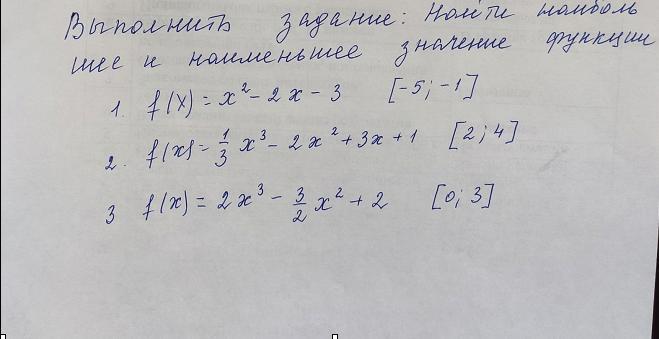 Выполнить задание: Найти наиболь
шее и наименьшее значение функции
1. f(x) = x² - 2x - 3 [-5; -1]
2. f(x) = 1/3 x³ - 2x² + 3x + 1 [2; 4]
3 f(x) = 2x³ - 3/2 x² + 2 [0; 3]